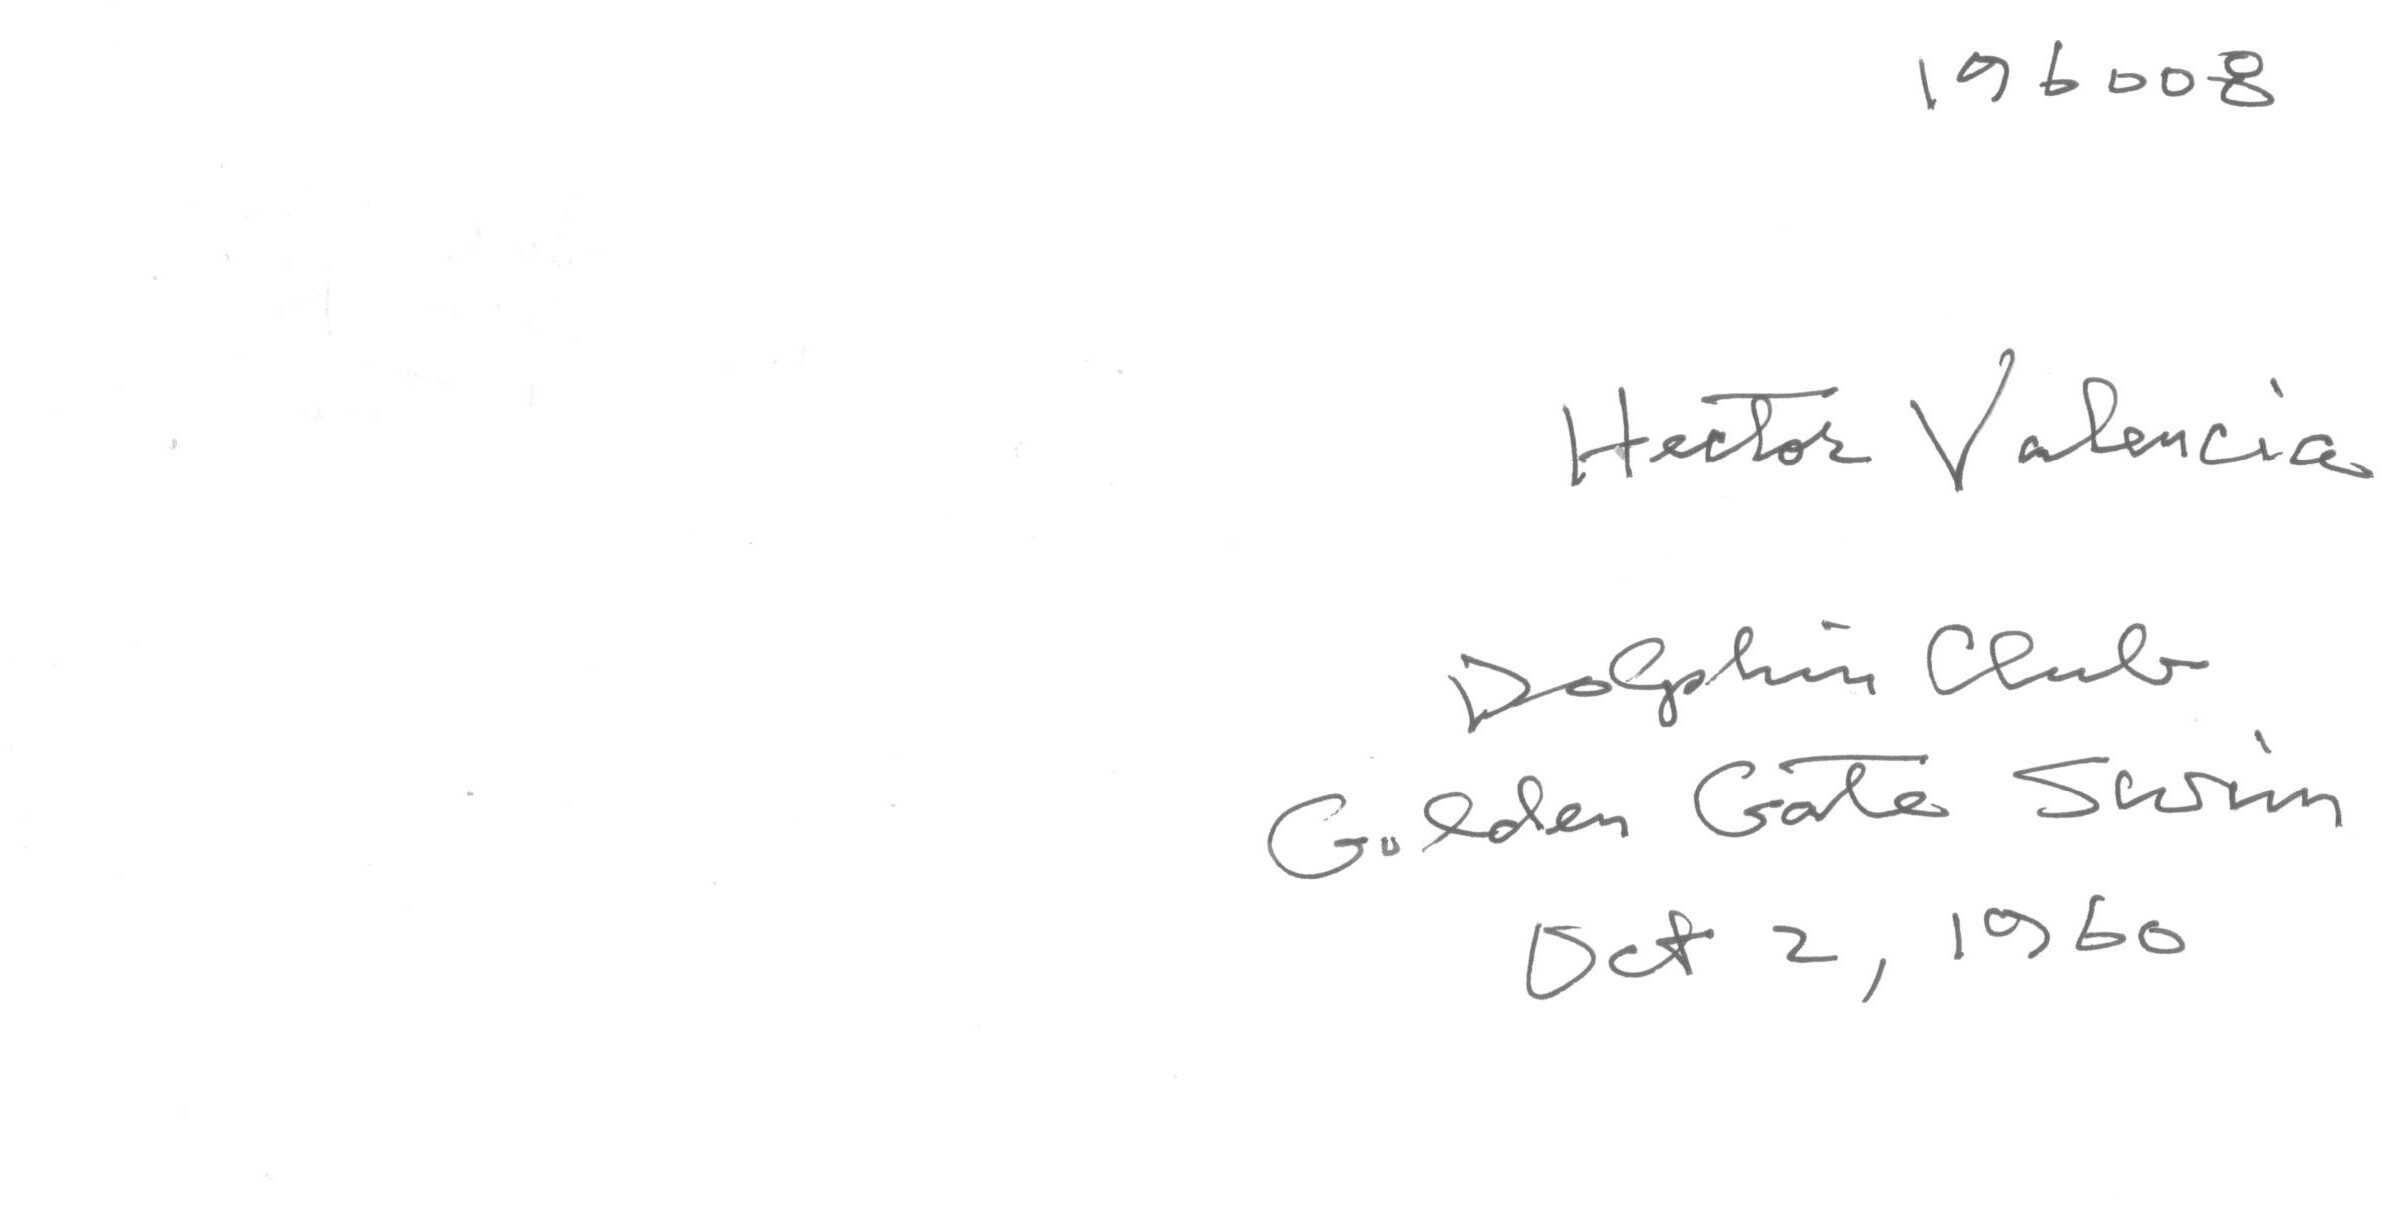 196008
Hector Valencia
Dolphin Club
Golden Gate Swim
Oct 2, 1960